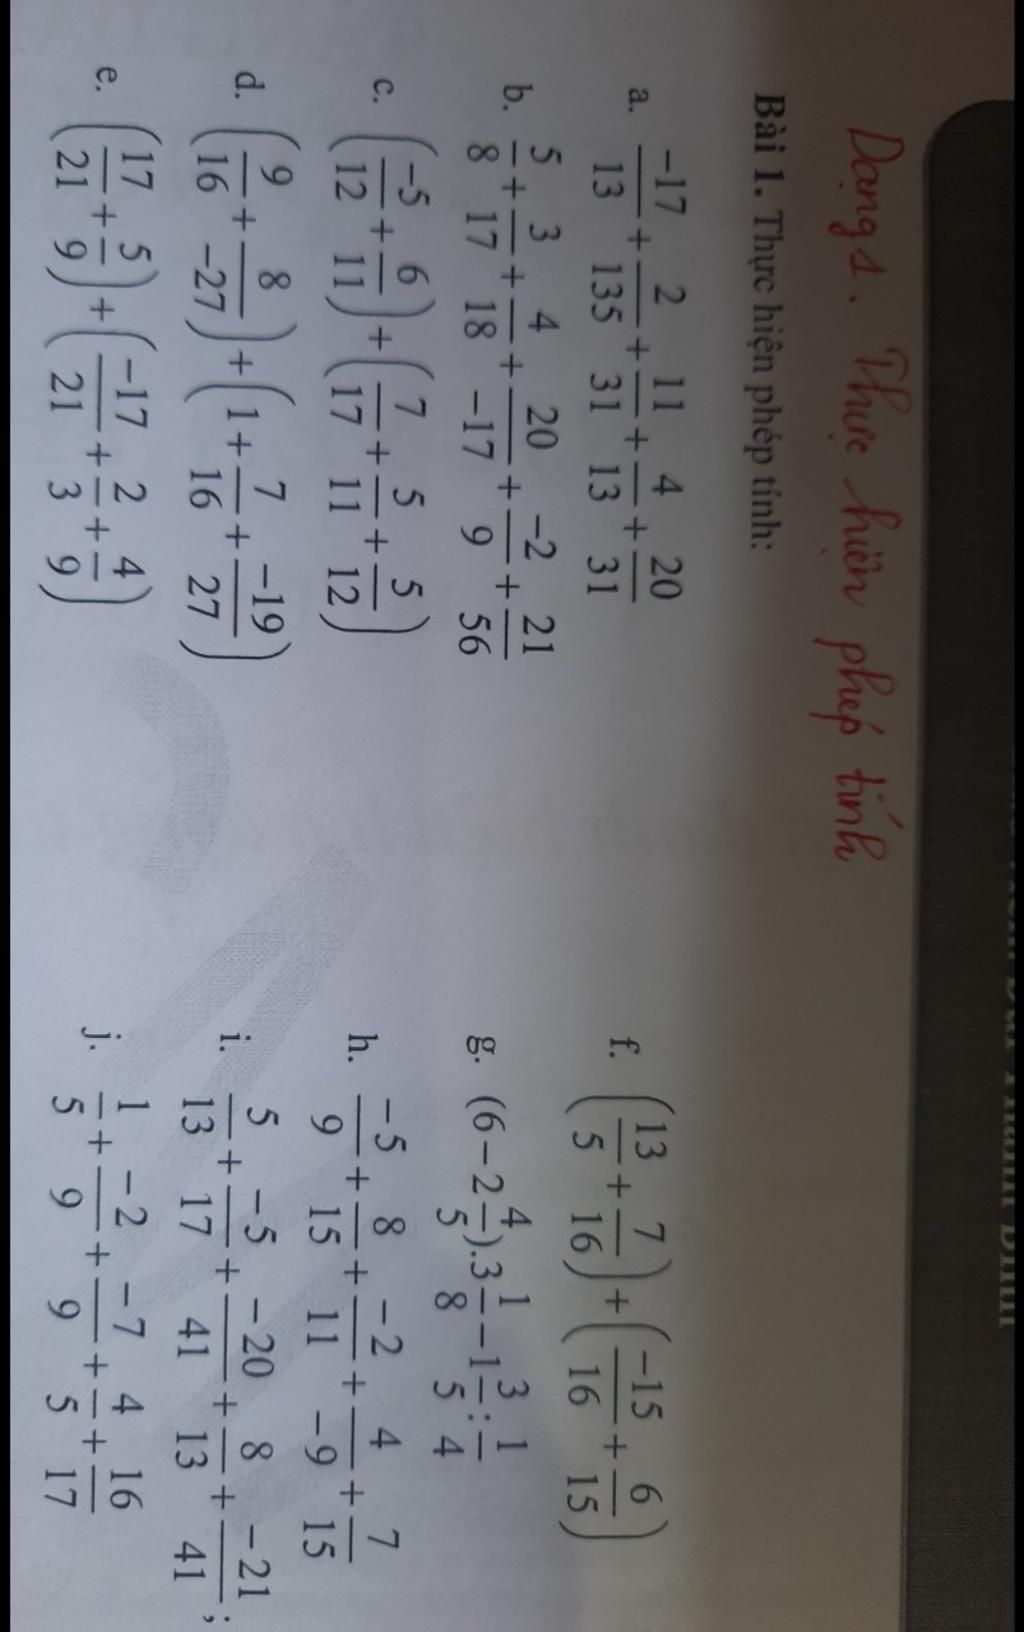 Dạng 1. Thực hiện phép tính
Bài 1. Thực hiện phép tính:
a. -17/13 + 2/135 + 11/31 + 4/13 + 20/31
b. 5/8 + 3/17 + 4/18 + 20/-17 + -2/9 + 21/56
c. (-5/12 + 6/11) + (7/17 + 5/11 + 5/12)
d. (9/16 + 8/-27) + (1 + 7/16 + -19/27)
e. (17/21 + 5/9) + (-17/21 + 2/3 + 4/9)
f. (13/5 + 7/16) + (-15/16 + 6/15)
g. (6 - 2 4/5).3 1/8 - 1 3/5 : 1/4
h. -5/9 + 8/15 + -2/11 + 4/-9 + 7/15
i. 5/13 + -5/17 + -20/41 + 8/13 + -21/41;
j. 1/5 + -2/9 + -7/9 + 4/5 + 16/17